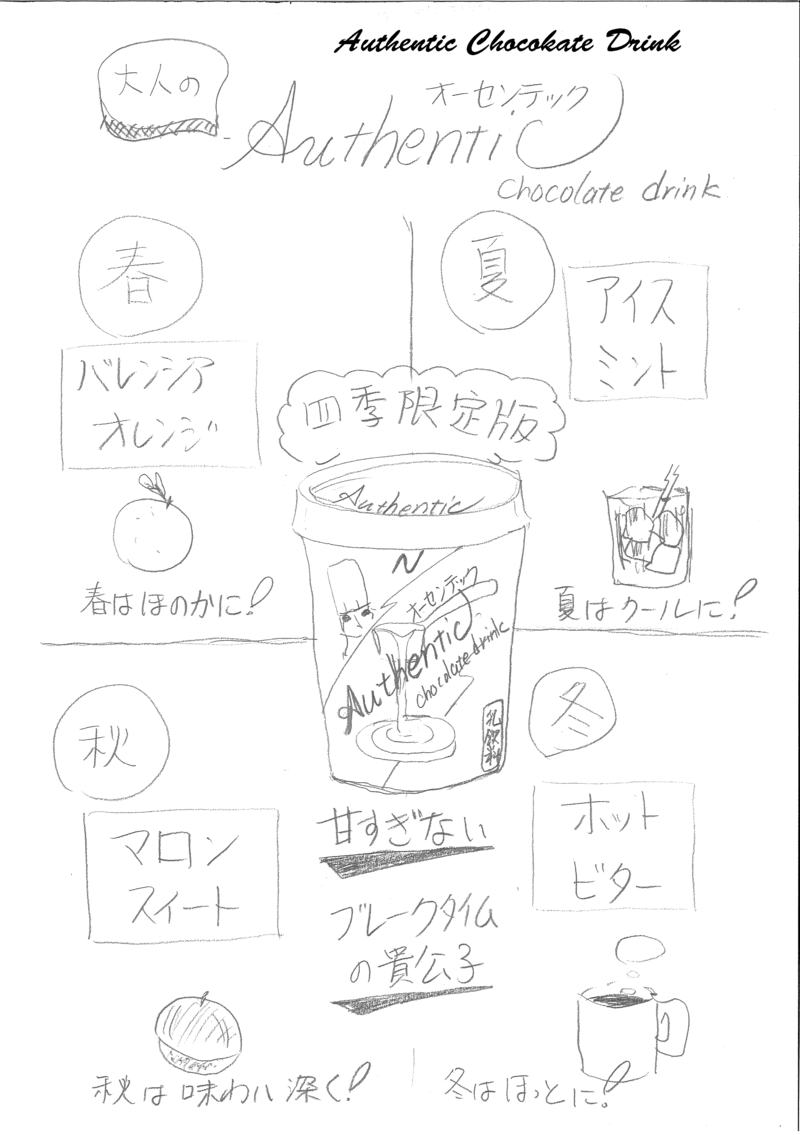 Authentic Chocokate Drink
大人の
オーセンテック
Authentic
chocolate drink
春
バレンシア
オレンジ
春はほのかに!
夏
アイス
ミント
夏はクールに!
四季限定版
Authentic
N
オーセンテック
Authentic
chocolate drink
乳飲料
秋
マロン
スイート
秋は味わい深く!
甘すぎない
ブレークタイム
の貴公子
冬
ホット
ビター
冬はほっとに!